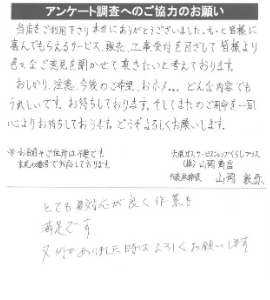 アンケート調査へのご協力のお願い
当店をご利用下さり本当にありがとうございました。もっと皆様に
喜んでもらえるサービス、販売、工事受付を目ざして皆様より
色々なご意見を聞かせて頂きたいと考えております。
おしかり、注意、今後のご希望、おホメ…どんな内容でも
うれしいです。お待ちしております。そしてまたのご用命を一同
心よりお待ちしております。どうぞよろしくお願いします。
※お名前やご住所は不要です。
大阪ガスサービスショップくらしプラス
(株)山岡商店
山岡
とても対応が良く作業も
満足です
又何かありました時はよろしくお願いします